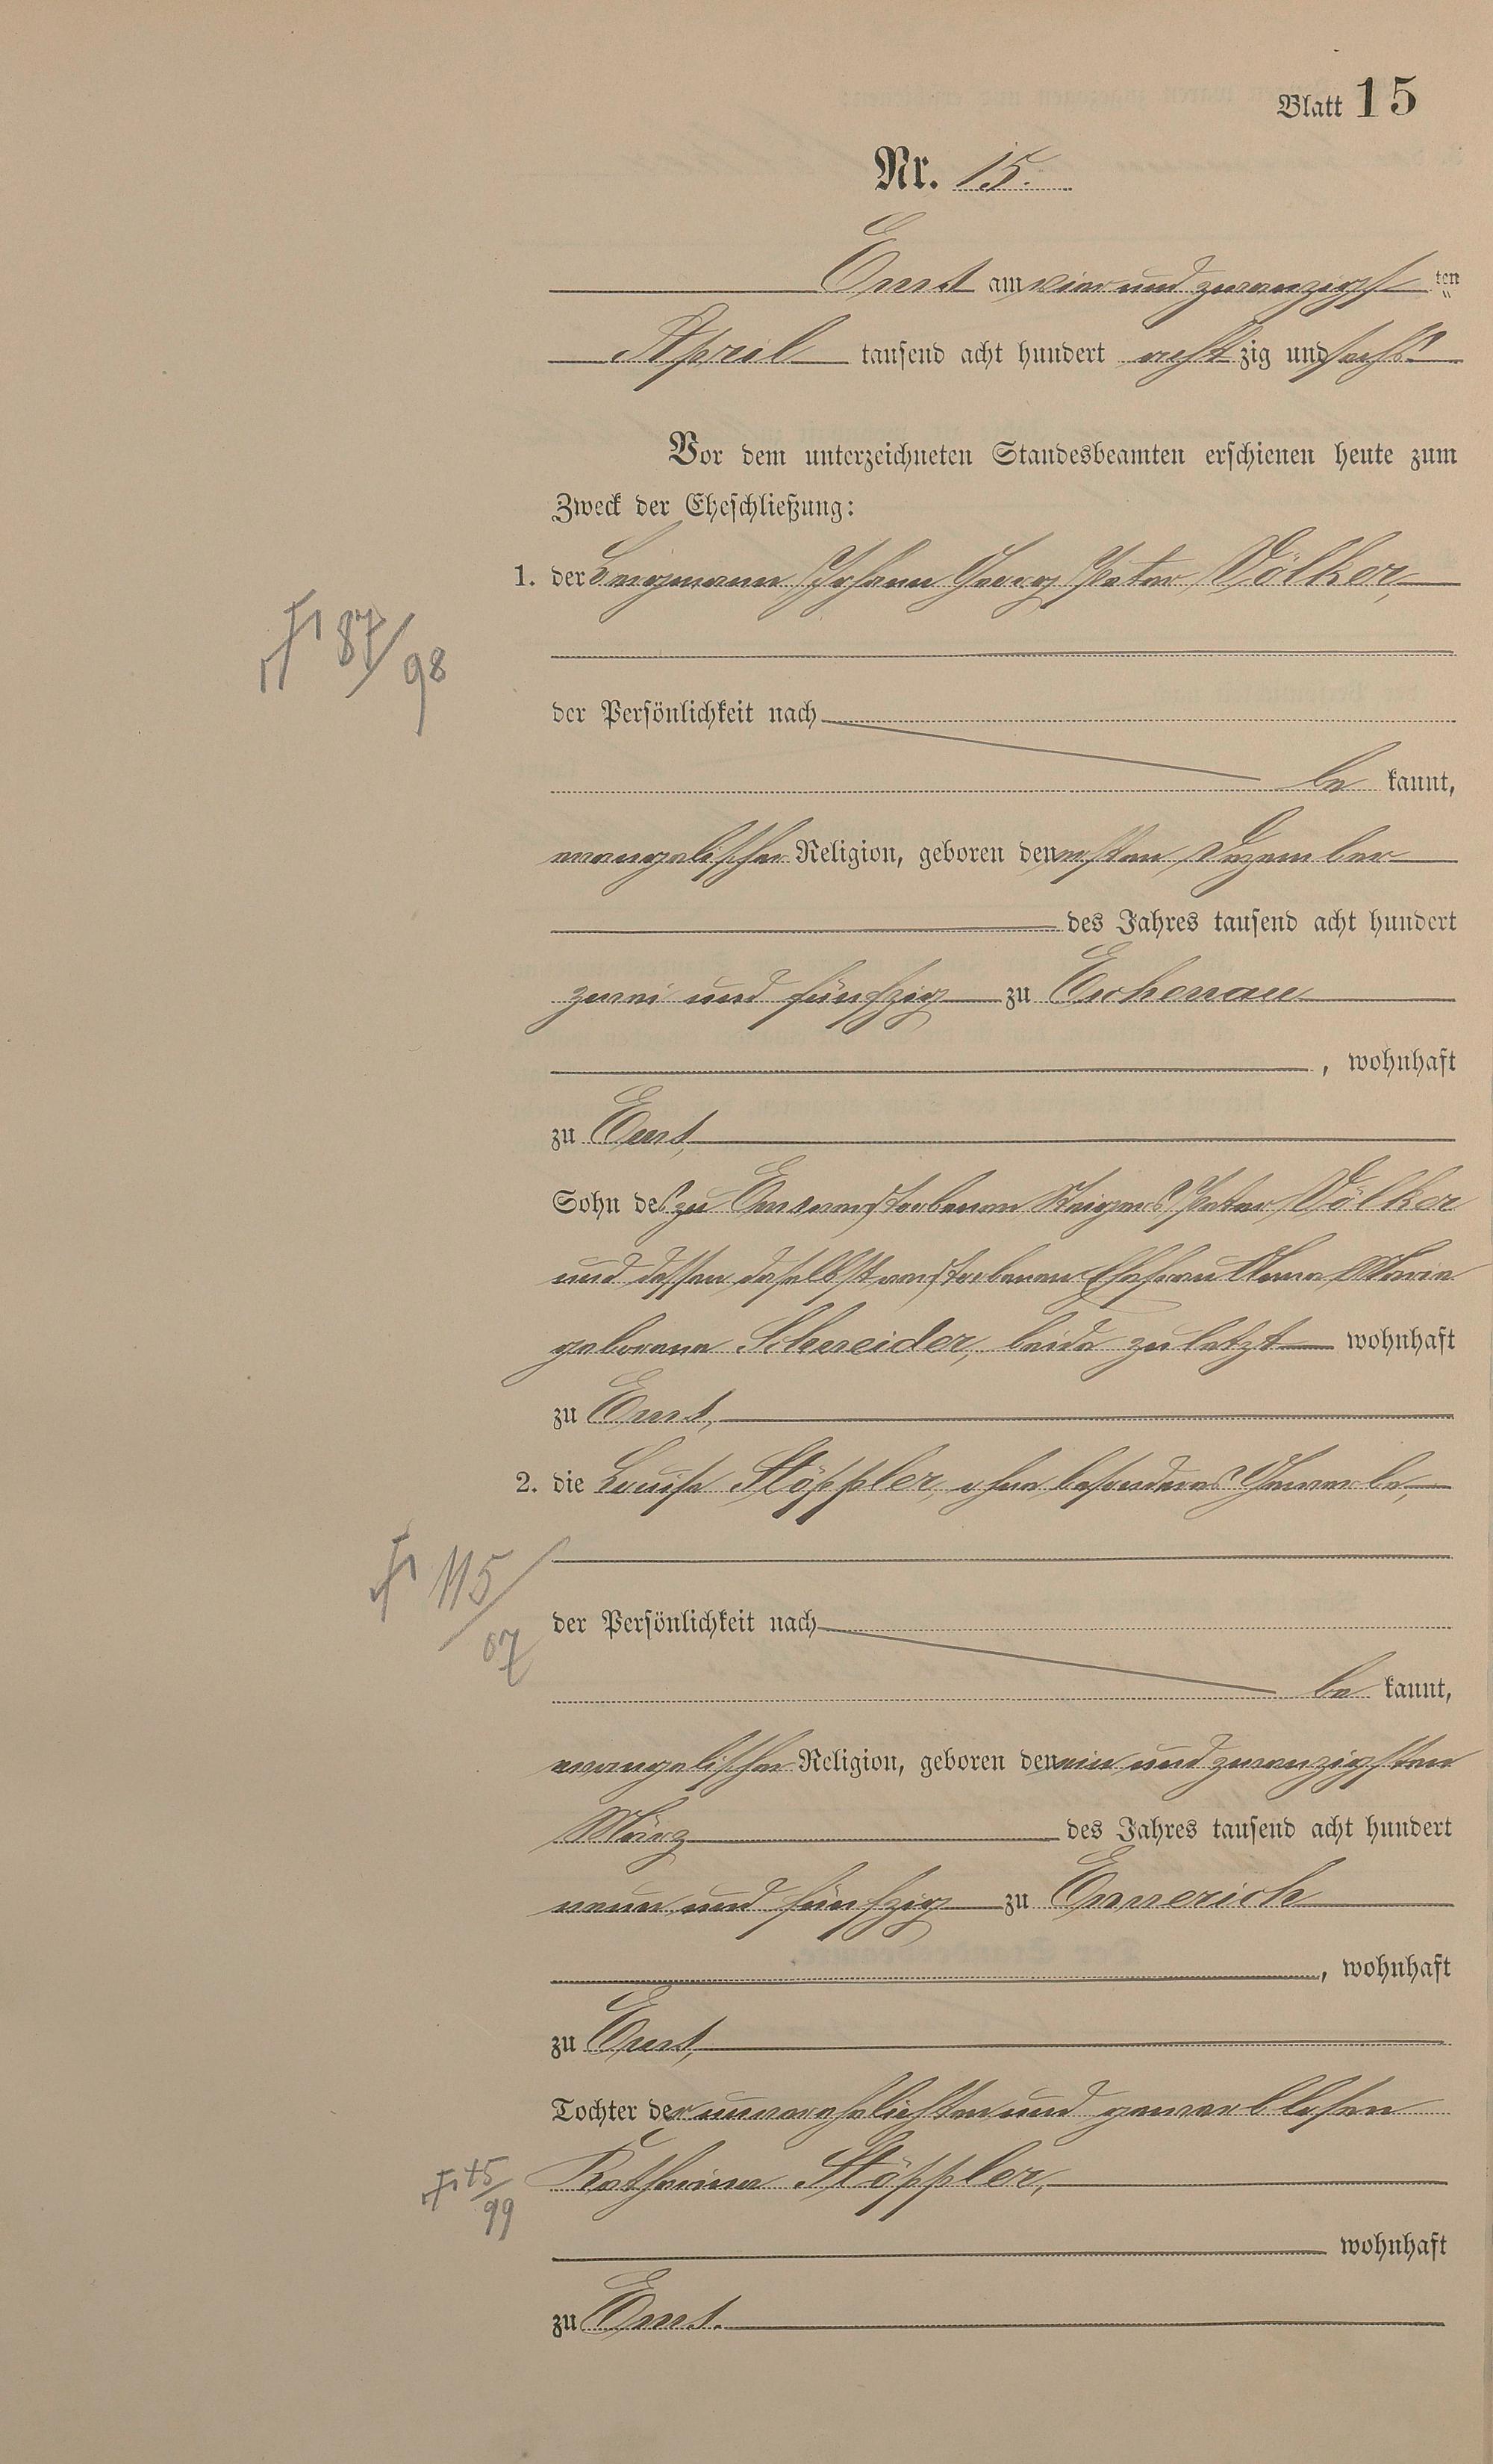 Blatt 15
Nr. 15.
Ems am vier und zwanzigst ten
April tausend acht hundert acht zig und sechs
Vor dem unterzeichneten Standesbeamten erschienen heute zum
Zweck der Eheschließung:
1. der Bergmann Johann Georg Peter Völker,
† 87/98
der Persönlichkeit nach
be kannt,
evangelischer Religion, geboren den ersten Dezember
des Jahres tausend acht hundert
zwei und fünfzig zu Eschenau
, wohnhaft
zu Ems,
Sohn des zu Ems verstorbenen Steigers Peter Völker
und dessen daselbst verstorbenen Ehefrau Anna Maria
geborene Schneider, beide zuletzt wohnhaft
zu Ems,
2. die Louise Stöppler, ohne besonderes Gewerbe,
† 115/07
der Persönlichkeit nach
be kannt,
evangelischer Religion, geboren den ein und zwanzigsten
März des Jahres tausend acht hundert
neun und fünfzig zu Ennerich
, wohnhaft
zu Ems,
Tochter der unverehelichten und gewerblosen
Katharina Stöppler,
† 45/99
wohnhaft
zu Ems.